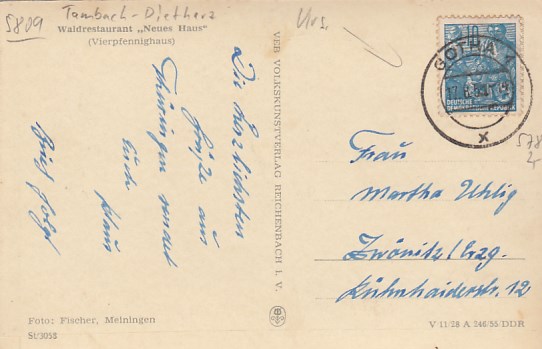 5809
Tambach-Dietharz
Waldrestaurant „Neues Haus“
(Vierpfennighaus)
Die herzlichsten
Grüße aus
Thüringen sendet
Euch
Klaus
Brief folgt
Foto: Fischer, Meiningen
St/3058
VEB VOLKSKUNSTVERLAG REICHENBACH I. V.
GOTHA
DEUTSCHE
DEMOKRATISCHE REPUBLIK
Frau
Martha Uhlig
Zwönitz/Erzg.
Kühnhaiderstr. 12
V 11/28 A 246/55/DDR